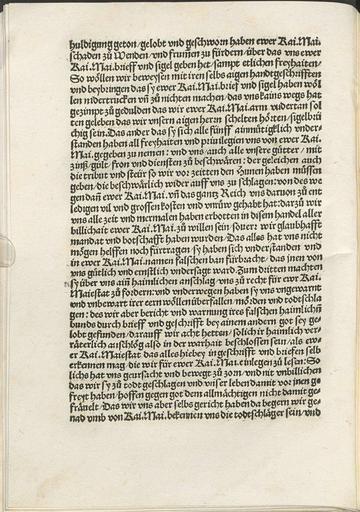 huldigung geton/gelobt vnd geschworn haben ewer Kai. Mai.
schaden zů wenden/vnd frumen zu fürdern/über das vns ewer
Kai. Mai. brieff vnd sigel geben het/sampt etlichen freyhaiten/
So wöllen wir beweysen mit iren selbs aigen handtgeschrifften
vnd beybringen das sy ewer Kai. Mai. brief vnd sigel haben wöl
len nidertrucken vñ zů nichten machen/das vns kains wegs hat
gezimpt zů gedulden das wir ewer Kai. Mai. arm vndertan sol
ten geleben das wir vnsern aigen herrn schelten hörten/sigelbrü
chig sein. Das ander das sy sich alle fünff ainmütigklich vnder⸗
standen haben all freyhaiten vnd priuilegien vns von ewer Kai.
Mai. gegeben zů nemen/vnd vns/auch alle vnsere gütter/mit
zinß/gült/fron vnd diensten zů beschwären/der geleichen auch
die tribut vnd steür so wir vor zeitten den haben müssen
geben/die beschwärlich wider auff vns zu schlagen/von des we
gen dañ ewer Kai. Mai. vñ das gantz Reich vns daruon zů em
ledigen vil vnd grossen kosten vnd vnrüw gehabt hat/darzů wir
vns alle zeit vnd mermalen haben erbotten in disem handel aller
billichait ewer Kai. Mai. zů willen sein souerr wir glaubhafft
mandat vnd botschafft haben wurden. Das alles hat vns nicht
mögen helffen noch fürtragen/sy haben sich vnderstanden vnd
in ewer Kai. Mai. namen falschen ban fürbracht/das jnen von
vns gütlich vnd ernstlich vndersagt ward. Zum dritten machten
sy über vns ain haimlichen anschlag/vns zů recht für ewr Kai.
Maiestat zů fordern/vnd vnderwegen haben sy vns vngewarnt
vnd vnbewart irer eern wöllen überfallen/mörden vnd todtschla
gen/des wir aber bericht vnd warnung ires falschen haimlichñ
bunds durch brieff vnd geschrifft bey ainem andern got sey ge⸗
lobt gefunden/darauff wir acht hetten/solich ir haimlich ver⸗
räterlich anschlög also in der warhait beschlossen sein/als ew⸗
er Kai. Maiestat das alles hiebey in geschrifft vnd briefen selb
erkennen mag/die wir für ewer Kai. Mai. einlegen zů lesen: So
lichs hat vns geursacht vnd bewegt zů zorn/vnd nit vnbillichen
das wir sy zů tod geschlagen vnd vnser leben damit vor jnen ge
freyt haben/hoffen gegen got dem allmächtigen nicht damit ge⸗
fräuelt/Das wir vns aber selbs gericht haben da begern wir ge⸗
nad vmb von Kai. Mai. bekennen vns die todtschläger sein/vnd